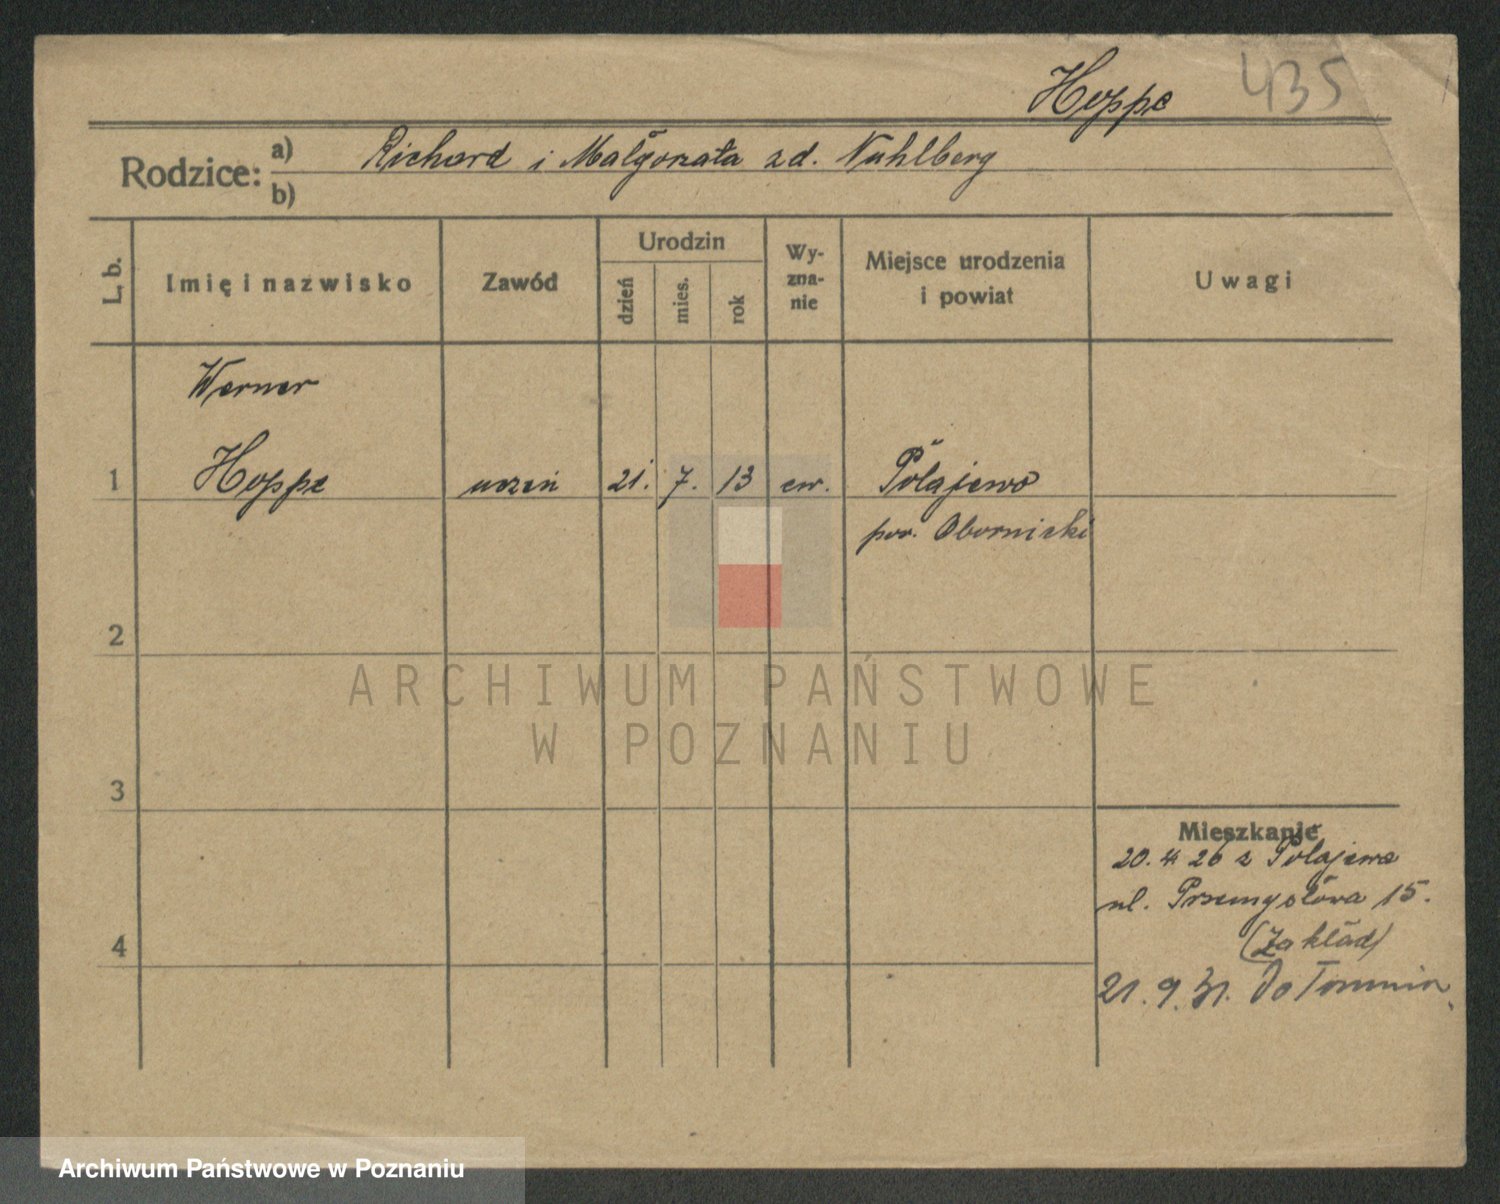 Hoppe 435
Rodzice: a) Richard i Małgorzata zd. Nuhlberg
b)
L. b. Imię i nazwisko Zawód Urodzin dzień mies. rok Wy-zna-nie Miejsce urodzenia i powiat Uwagi
Werner
1 Hoppe uczeń 21. 7. 13 ew. Połajewo
pow. Obornicki
2
ARCHIWUM PAŃSTWOWE
W POZNANIU
3
Mieszkanie
20. 4 26 z Połajewa
ul. Przemysłowa 15.
(Zakład)
4
21. 9. 31. Do Torunia
Archiwum Państwowe w Poznaniu